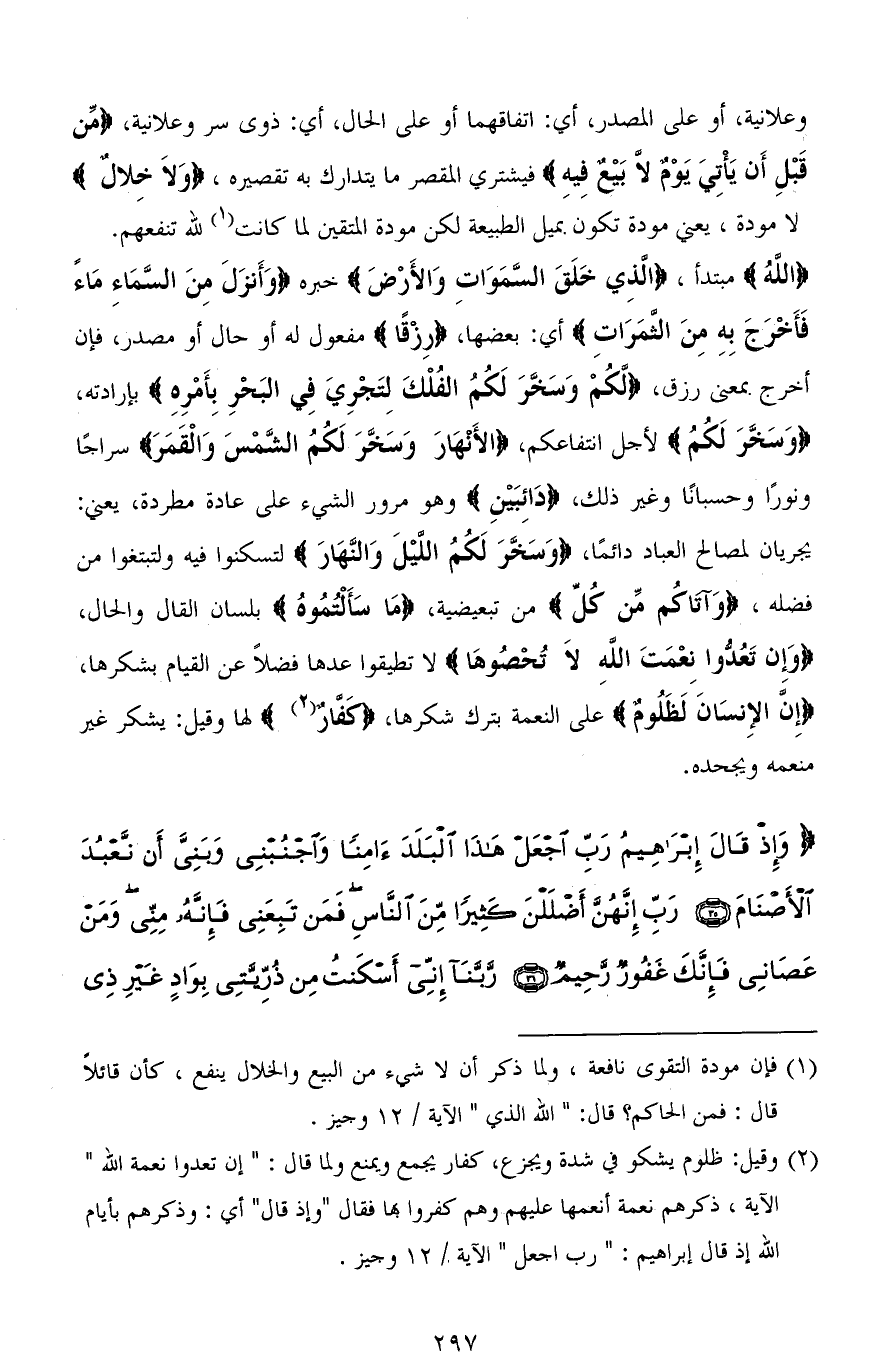 وعلانية، أو على المصدر، أي: اتفاقهما أو على الحال، أي: ذوى سر وعلانية، ﴿مِّن
قَبْلِ أَن يَأْتِيَ يَوْمٌ لاَّ بَيْعٌ فِيهِ﴾ فيشتري المقصر ما يتدارك به تقصيره ، ﴿وَلاَ خِلالٌ ﴾
لا مودة ، يعني مودة تكون بميل الطبيعة لكن مودة المتقين لما كانت(١) لله تنفعهم.
﴿اللَّهُ﴾ مبتدأ ، ﴿الَّذِي خَلَقَ السَّمَوَاتِ وَالأَرْضَ﴾ خبره ﴿وَأَنزَلَ مِنَ السَّمَاءِ مَاءً
فَأَخْرَجَ بِهِ مِنَ الثَّمَرَاتِ﴾ أي: بعضها، ﴿رِزْقًا﴾ مفعول له أو حال أو مصدر، فإن
أخرج بمعنى رزق، ﴿لَّكُمْ وَسَخَّرَ لَكُمُ الفُلْكَ لِتَجْرِيَ فِي البَحْرِ بِأَمْرِهِ﴾ بإرادته،
﴿وَسَخَّرَ لَكُمُ﴾ لأجل انتفاعكم، ﴿الأَنْهَارَ وَسَخَّرَ لَكُمُ الشَّمْسَ وَالْقَمَرَ﴾ سراجًا
ونورًا وحسبانًا وغير ذلك، ﴿دَائِبَيْنِ﴾ وهو مرور الشيء على عادة مطردة، يعني:
يجريان لمصالح العباد دائمًا، ﴿وَسَخَّرَ لَكُمُ اللَّيْلَ وَالنَّهَارَ﴾ لتسكنوا فيه ولتبتغوا من
فضله ، ﴿وَآتَاكُم مِّن كُلِّ﴾ من تبعيضية، ﴿مَا سَأَلْتُمُوهُ﴾ بلسان القال والحال،
﴿وَإِن تَعُدُّوا نِعْمَتَ اللَّهِ لاَ تُحْصُوهَا﴾ لا تطيقوا عدها فضلاً عن القيام بشكرها،
﴿إِنَّ الإِنسَانَ لَظَلُومٌ﴾ على النعمة بترك شكرها، ﴿كَفَّارٌ(٢) ﴾ لها وقيل: يشكر غير
منعمه ويجحده.
﴿ وَإِذْ قَالَ إِبْرَٰهِيمُ رَبِّ ٱجْعَلْ هَٰذَا ٱلْبَلَدَ ءَامِنًا وَٱجْنُبْنِى وَبَنِىَّ أَن نَّعْبُدَ
ٱلْأَصْنَامَ ﴿٣٥﴾ رَبِّ إِنَّهُنَّ أَضْلَلْنَ كَثِيرًا مِّنَ ٱلنَّاسِ ۖ فَمَن تَبِعَنِى فَإِنَّهُۥ مِنِّى ۖ وَمَنْ
عَصَانِى فَإِنَّكَ غَفُورٌ رَّحِيمٌ ﴿٣٦﴾ رَّبَّنَآ إِنِّىٓ أَسْكَنتُ مِن ذُرِّيَّتِى بِوَادٍ غَيْرِ ذِى
(١) فإن مودة التقوى نافعة ، ولما ذكر أن لا شيء من البيع والخلال ينفع ، كأن قائلاً
قال : فمن الحاكم؟ قال: " الله الذي " الآية / ١٢ وجيز .
(٢) وقيل: ظلوم يشكو في شدة ويجزع، كفار يجمع ويمنع ولما قال : " إن تعدوا نعمة الله "
الآية ، ذكرهم نعمة أنعمها عليهم وهم كفروا بها فقال "وإذ قال" أي : وذكرهم بأيام
الله إذ قال إبراهيم : " رب اجعل " الآية / ١٢ وجيز .
٢٩٧